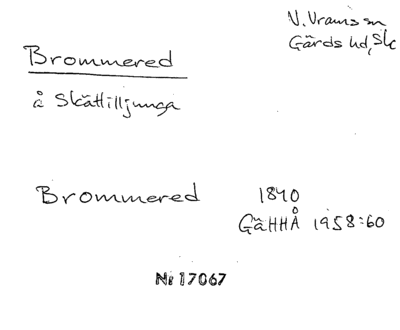 V. Vrams sn
Gärds hd, Sk
Brommered
å Skättilljunga
Brommered 1840
GäHHÅ 1958:60
Nr 17067